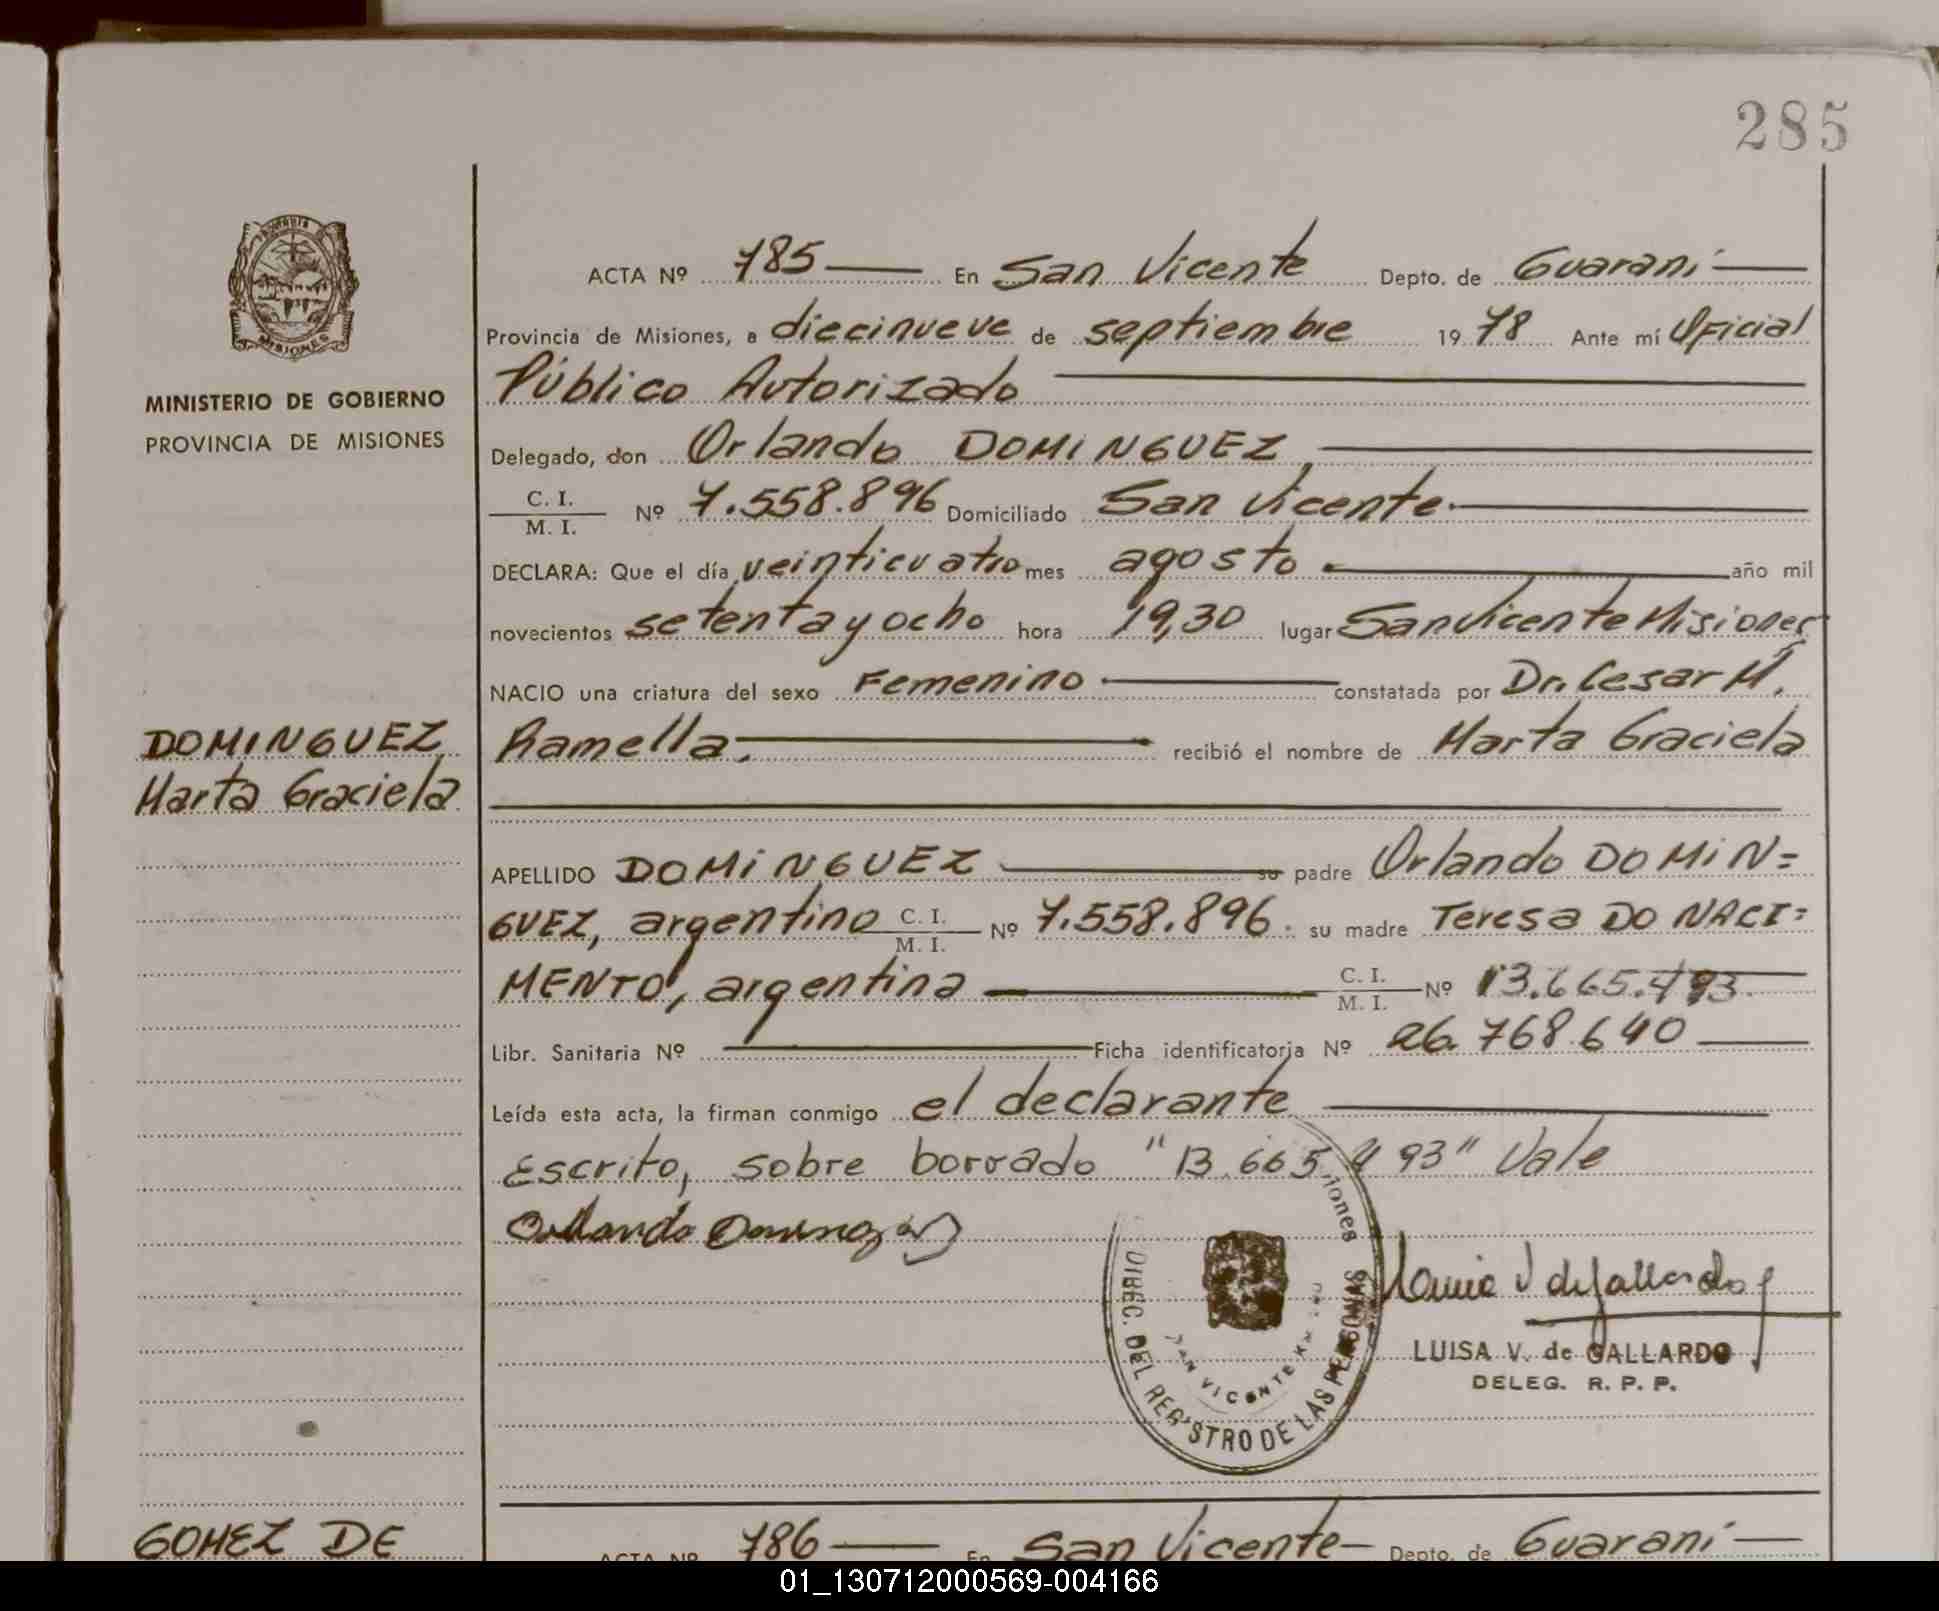 285
ACTA Nº 785 En San Vicente Depto. de Guaraní
Provincia de Misiones, a diecinueve de septiembre 1978 Ante mí Oficial
Público Autorizado
MINISTERIO DE GOBIERNO
PROVINCIA DE MISIONES
Delegado, don Orlando DOMINGUEZ,
C. I.
M. I.
Nº 7.558.896 Domiciliado San Vicente
DECLARA: Que el día veinticuatro mes agosto año mil
novecientos setenta y ocho hora 19,30 lugar San Vicente Misiones
NACIO una criatura del sexo Femenino constatada por Dr. Cesar M.
DOMINGUEZ
Marta Graciela
Ramella. recibió el nombre de Marta Graciela
APELLIDO DOMINGUEZ su padre Orlando DOMIN=
GUEZ, argentino C. I. M. I. Nº 7.558.896. su madre Teresa DO NACI=
MENTO, argentina C. I. M. I. Nº 13.665.493.
Libr. Sanitaria Nº Ficha identificatoria Nº 26.768.640
Leída esta acta, la firman conmigo el declarante
Escrito, sobre borrado "13.665.493" Vale
Orlando Dominguez
DIREC. DEL REGISTRO DE LAS PERSONAS
SAN VICENTE
LUISA V. de GALLARDO
DELEG. R. P. P.
GOMEZ DE
ACTA Nº 786 En San Vicente Depto. de Guaraní
01_130712000569-004166